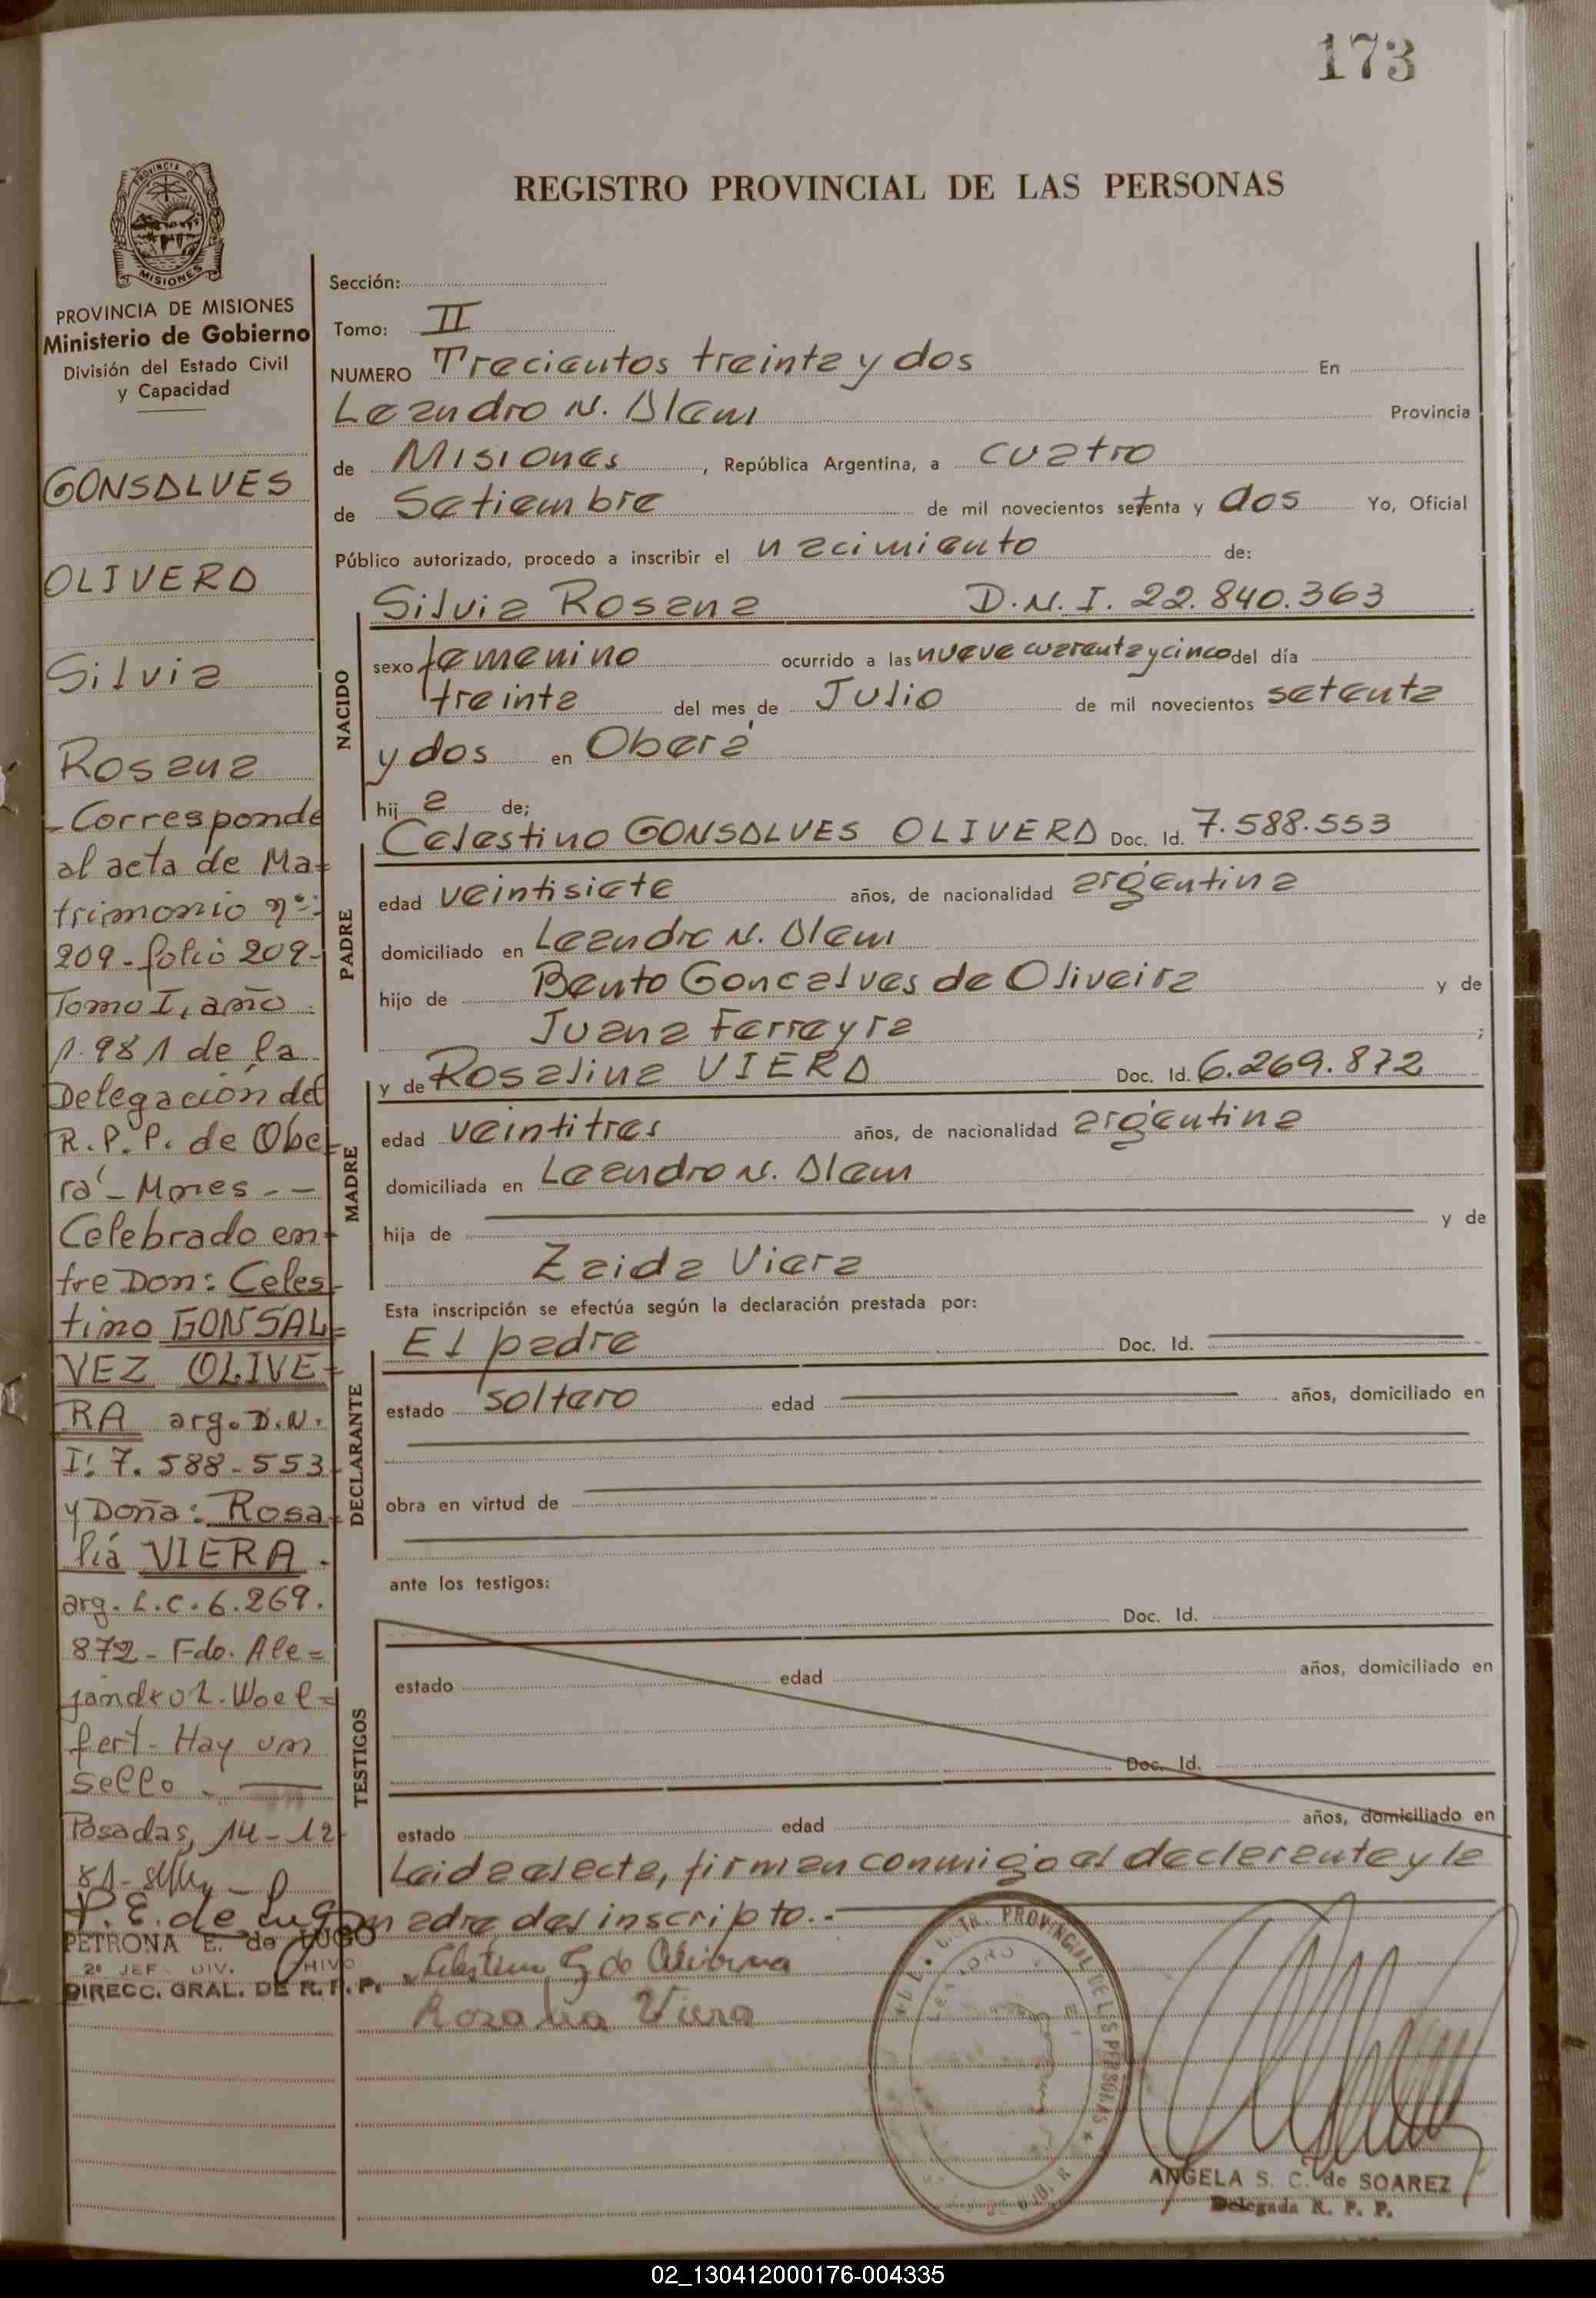 173
REGISTRO PROVINCIAL DE LAS PERSONAS
PROVINCIA DE
MISIONES
PROVINCIA DE MISIONES
Ministerio de Gobierno
División del Estado Civil
y Capacidad
GONSALVES
OLIVERA
Silvia
Rosana
- Corresponde
al acta de Ma=
trimonio nº:
209 - folio 209 -
Tomo I, año
1.981 de la
Delegación del
R.P.P. de Obe=
rá - Mnes - -
Celebrado en=
tre Don: Celes=
tino GONSAL=
VEZ OLIVE=
RA arg. D.N.
I: 7.588-553
y Doña: Rosa=
lia VIERA.
arg. L.C. 6.269.
872 - Fdo. Ale=
jandro L. Woel=
fert - Hay un
sello -
Posadas, 14-12
81-
P.E. de Lugo
PETRONA E. de LUGO
2º JEF DIV. ARCHIVO
DIRECC. GRAL. DE R. P. P.
Sección:
Tomo: II
NUMERO Trecientos treinta y dos En
Leandro N. Alem Provincia
de Misiones, República Argentina, a cuatro
de Setiembre de mil novecientos setenta y dos Yo, Oficial
Público autorizado, procedo a inscribir el nacimiento de:
Silvia Rosana D.N.I. 22.840.363
NACIDO
sexo femenino ocurrido a las nueve cuarenta y cinco del día
treinta del mes de Julio de mil novecientos setenta
y dos en Oberá
hij a de;
Celestino GONSALVES OLIVERA Doc. Id. 7.588.553
PADRE
edad veintisiete años, de nacionalidad argentina
domiciliado en Leandro N. Alem
hijo de Bento Goncalves de Oliveira y de
Juana Ferreyra ;
y de Rosalina VIERA Doc. Id. 6.269.872
MADRE
edad veintitres años, de nacionalidad argentina
domiciliada en Leandro N. Alem
hija de y de
Zaida Viera
Esta inscripción se efectúa según la declaración prestada por:
El padre Doc. Id.
DECLARANTE
estado soltero edad años, domiciliado en
obra en virtud de
ante los testigos:
Doc. Id.
TESTIGOS
estado edad años, domiciliado en
Doc. Id.
estado edad años, domiciliado en
Leida el acta, firman conmigo el declarante y la
madre del inscripto.-
Celestino G de Oliveira
Rozalia Viera
PROVINCIAL DE LAS PERSONAS
ANGELA S. C. de SOAREZ
Delegada R. P. P.
02_130412000176-004335